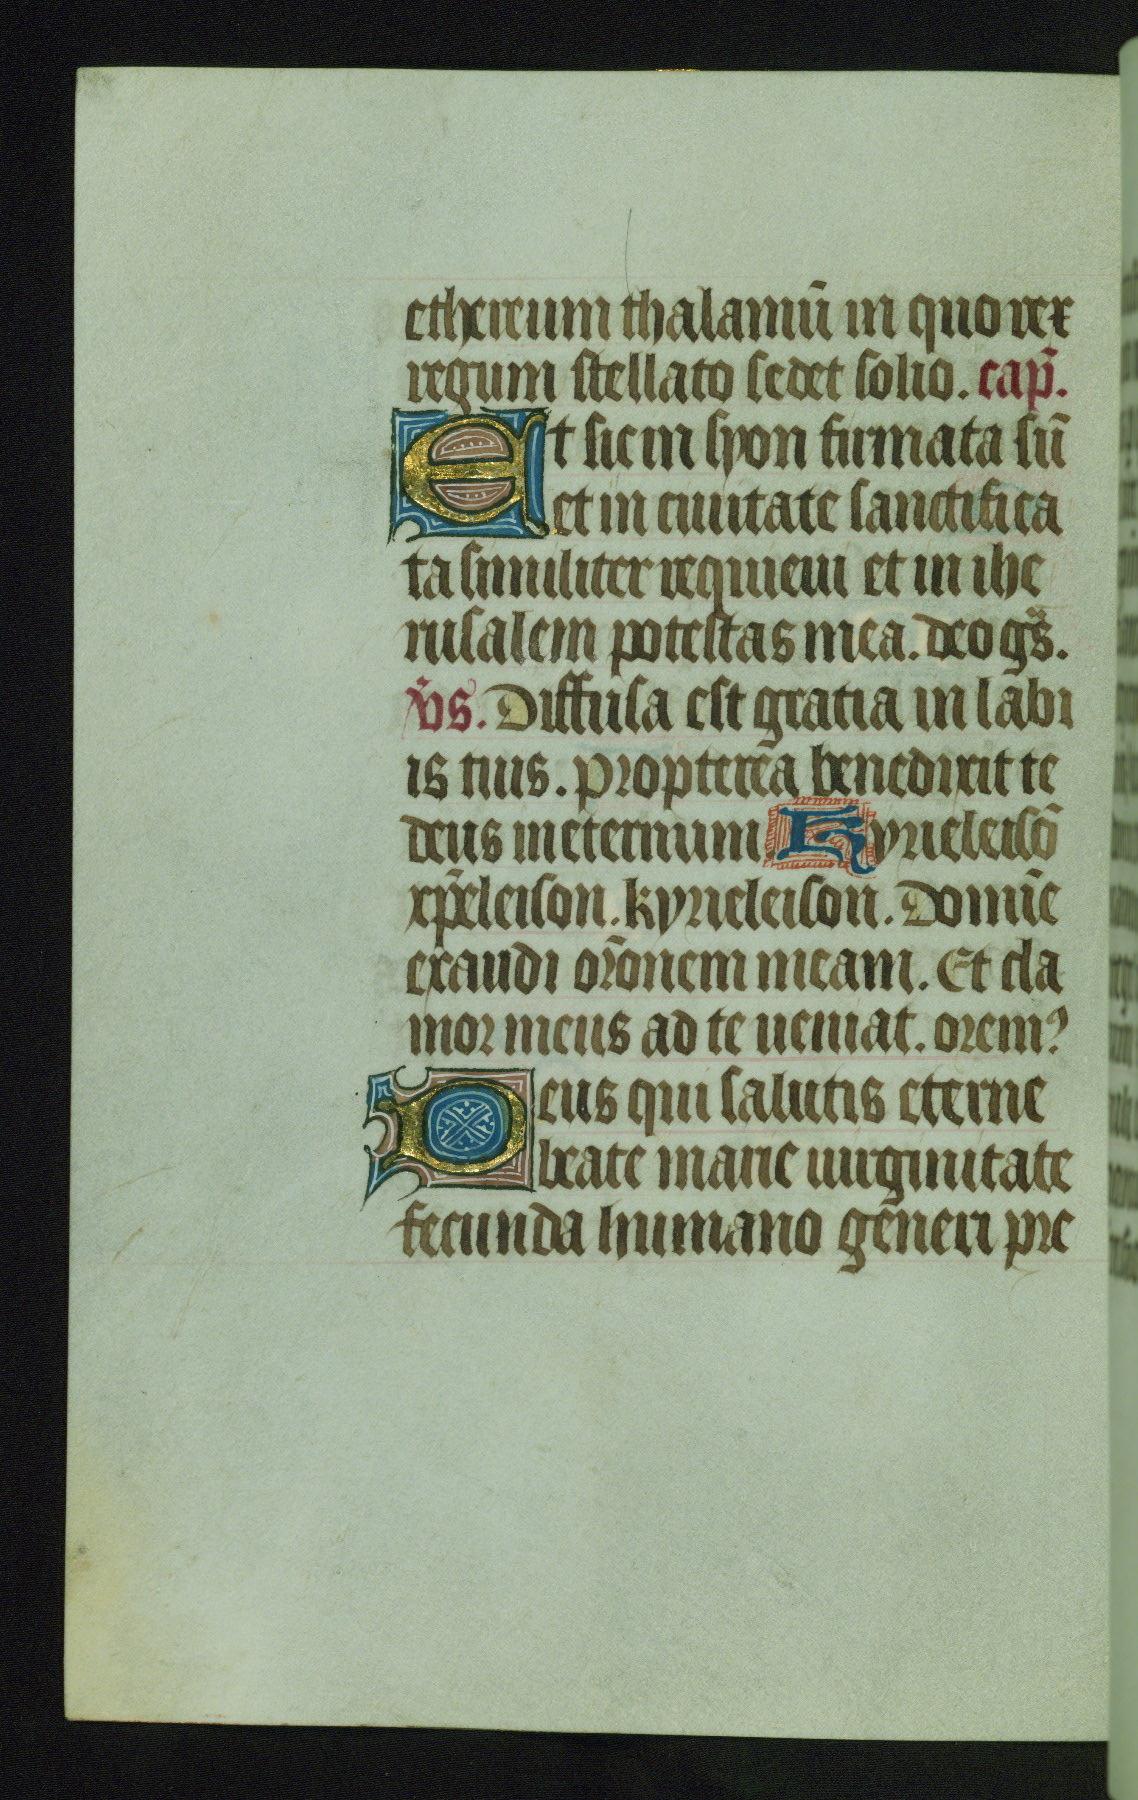 ethereum thalamū in quo rex
regum stellato sedet solio. cap̄.
Et sic in syon firmata sū
et in ciuitate sanctifica
ta similiter requieui et in ihe
rusalem potestas mea. deo gr̄s.
v̄s. Diffusa est gratia in labi
is tuis. propterea benedixit te
deus in eternum Kyrieleisō
xp̄eleison. kyrieleison. Domīe
exaudi or̄onem meam. Et cla
mor meus ad te ueniat. orem?
Deus qui salutis eterne
beate marie uirginitate
fecunda humano generi pre